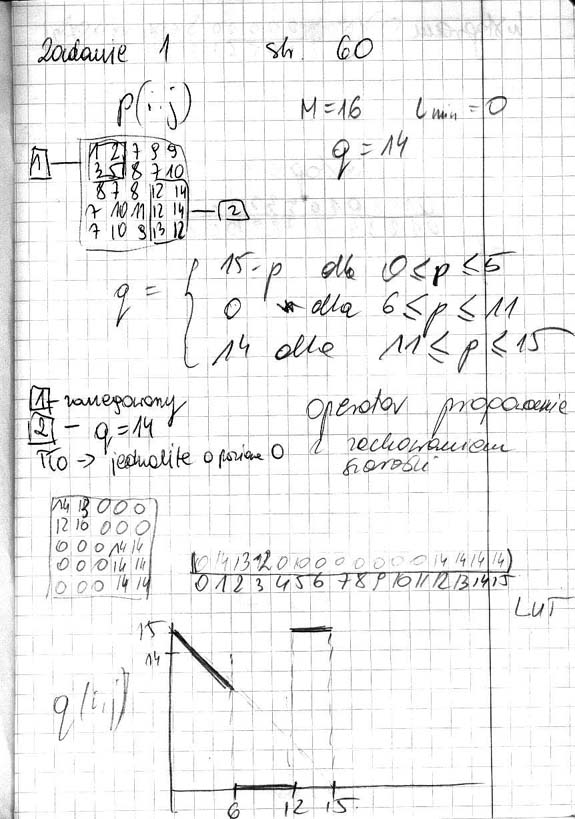 Zadanie 1 str. 60
p(i,j) M=16 Lmin=0
q=14
1 1 2 7 9 9
3 5 8 7 10
8 7 8 12 14
7 10 11 12 14 2
7 10 9 13 12
q = { 15-p dla 0≤p≤5
0 dla 6≤p≤11
14 dla 11≤p≤15
1 - zanegowany
2 - q=14
TŁO -> jednolite o poziomie 0
operator
z zachowaniem
szarości
14 13 0 0 0
12 10 0 0 0
0 0 0 14 14
0 0 0 14 14
0 0 0 14 14
0 14 13 12 0 10 0 0 0 0 0 0 14 14 14 14
0 1 2 3 4 5 6 7 8 9 10 11 12 13 14 15
LUT
15
14
q(i,j)
6 12 15